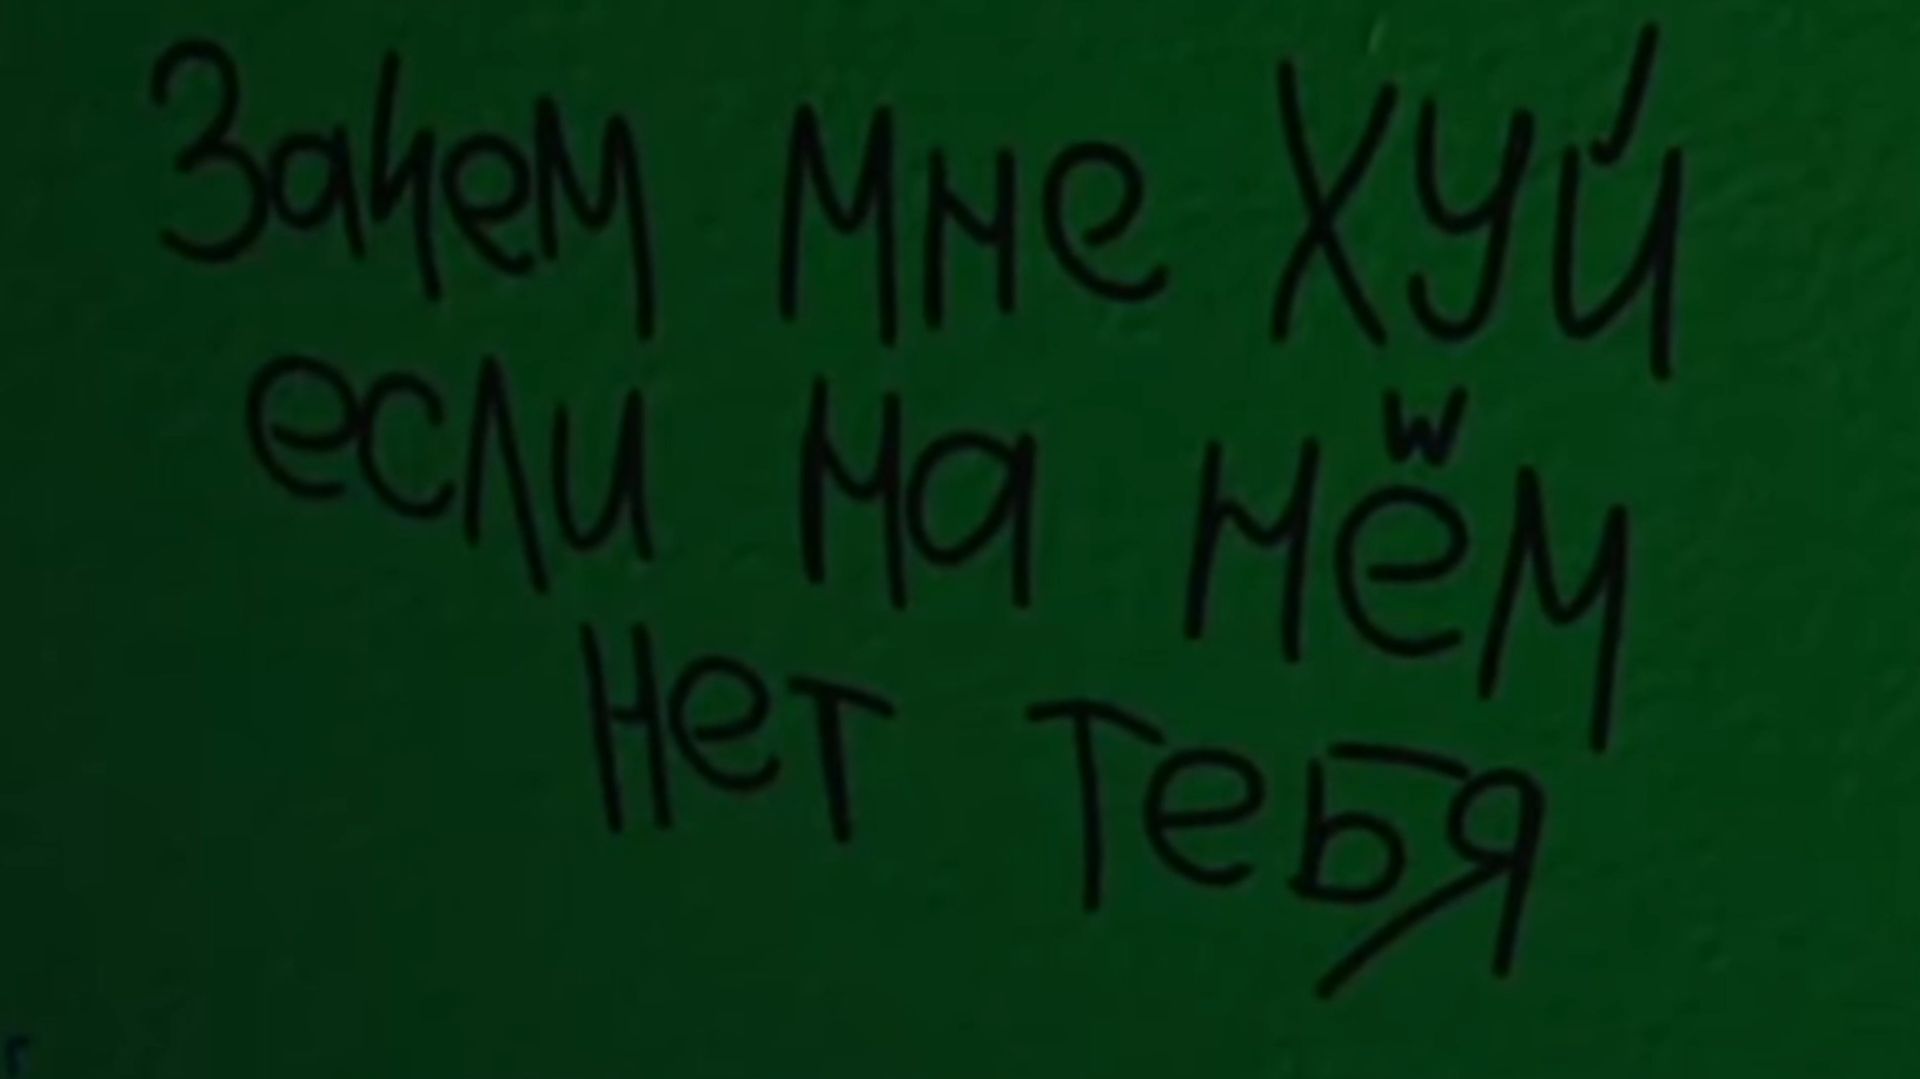 Зачем мне хуй
если на нём
нет тебя